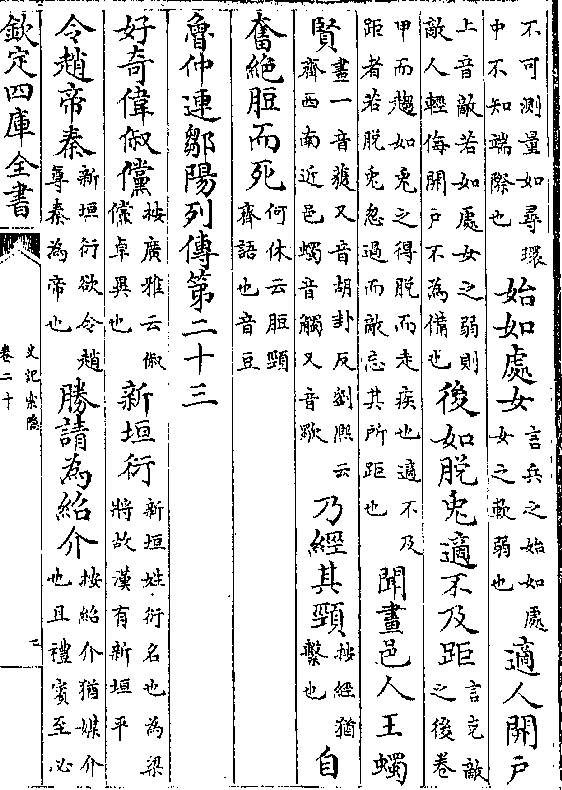 不可測量如尋環中不知端際也始如處女言兵之始如處女之軟弱也適人開戶
上音敵若如處女之弱則敵人輕侮開戶不為備也後如脫兎適不及距言克敵之後卷
甲而趨如兎之得脫而走疾也適不及距者若脫兎忽過而敵忘其所距也聞畫邑人王蠋
賢畫一音獲又音胡卦反劉熙云齊西南近邑蠋音觸又音歜乃經其頸按經猶繫也自
奮絶脰而死何休云脰頸齊語也音豆
魯仲連鄒陽列傳第二十三
好奇偉俶儻按廣雅云俶儻卓異也新垣衍新垣姓衍名也為梁將故漢有新垣平
令趙帝秦新垣衍欲令趙尊秦為帝也勝請為紹介按紹介猶媒介也且禮賓至必
欽定四庫全書
史記索隱
卷二十